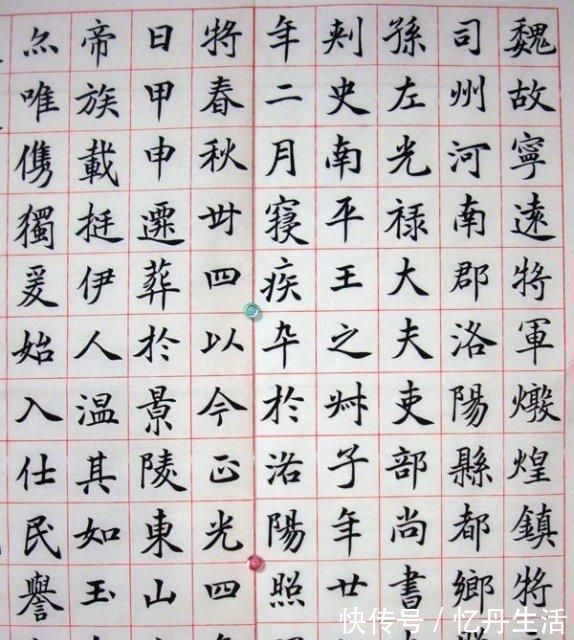 魏故寧遠將軍燉煌鎮將
司州河南郡洛陽縣都鄉
孫左光祿大夫吏部尚書
刺史南平王之子年廿
年二月寢疾卒於洛陽照
將春秋丗四以今正光四
日甲申遷葬於景陵東山
帝族載挺伊人温其如玉
唯儁獨爰始入仕民譽
快传号/忆丹生活